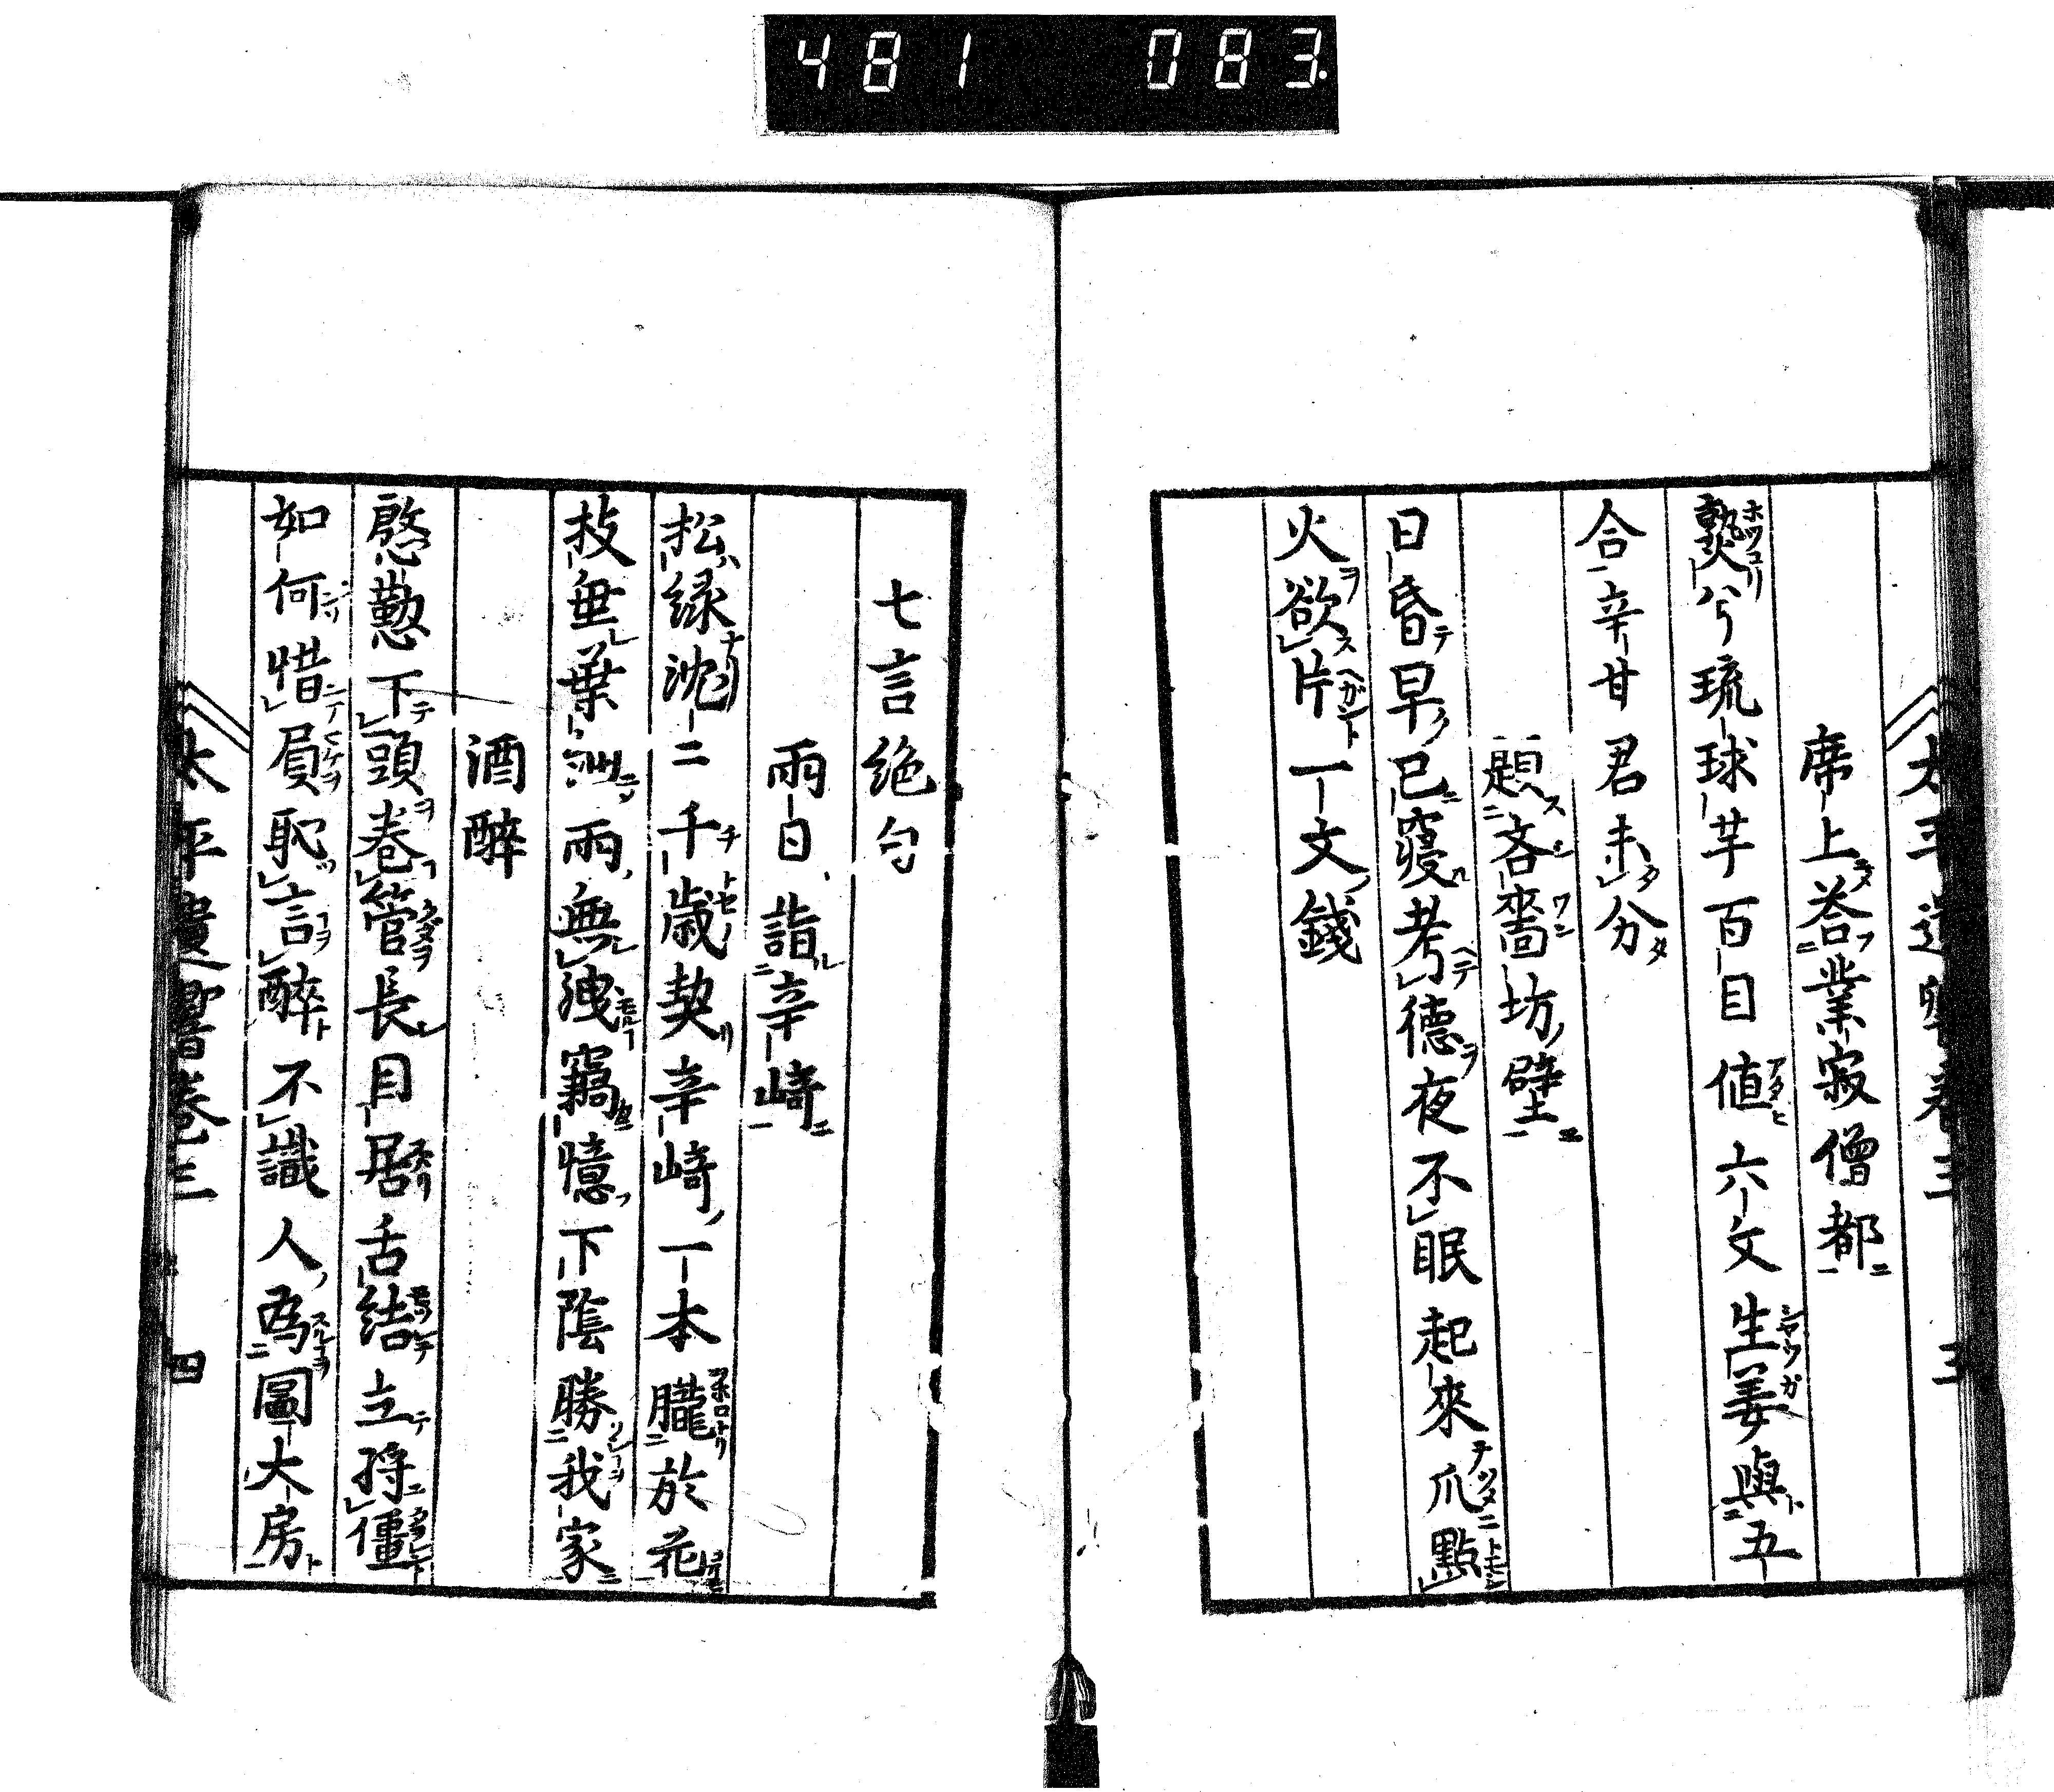 481 083.
席上答業寂僧都
熟兮琉球芋百目値六文生姜與五
合辛甘君未分
題吝嗇坊壁
日昏早已寝考德夜不眠起來爪點
火欲片一文錢
七言絶句
雨日詣辛崎
松緑沈二千歳契辛崎一本朧於花
枝垂葉洲雨無洩竊憶下陰勝我家
酒醉
慇懃下頭巻管長目居舌結立將僵
如何惜屓恥言醉不識人為圖大房
太平遺響巻三 四